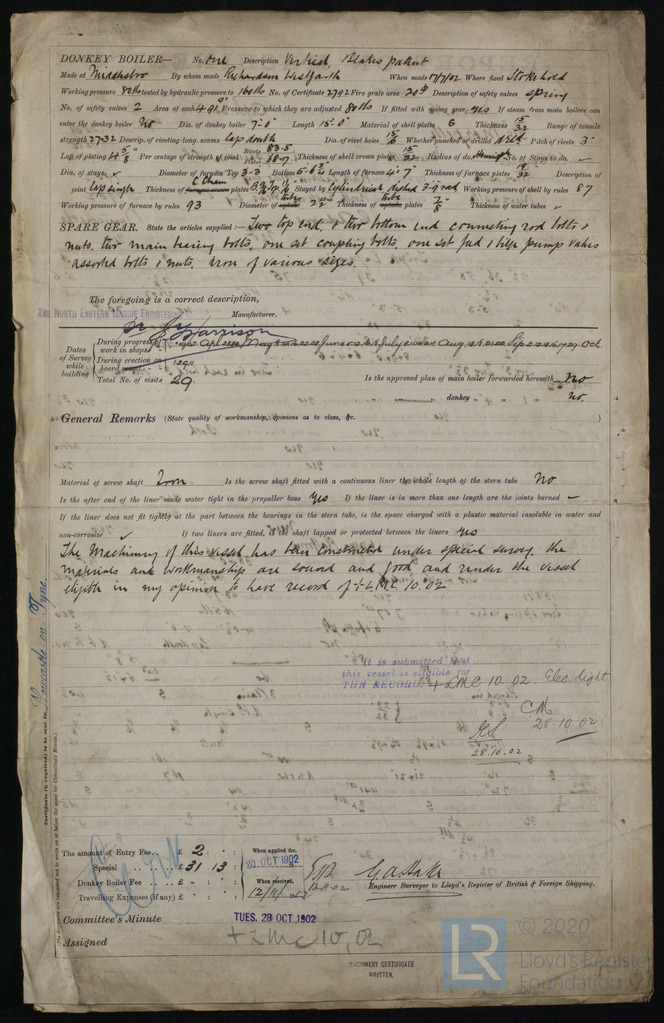 DONKEY BOILER— No. One Description Vertical, Blakes patent
Made at Middlesbro By whom made Richardson Westgarth When made 17/7/02 Where fixed Stokehold
Working pressure 80 lbs tested by hydraulic pressure to 160 lbs No. of Certificate 2792 Fire grate area 20 Description of safety valves Spring
No. of safety valves 2 Area of each 4.91 Pressure to which they are adjusted 80 lbs If fitted with easing gear yes If steam from main boilers can
enter the donkey boiler No Dia. of donkey boiler 7'-0" Length 15'-0" Material of shell plates S Thickness 15/32 Range of tensile
strength 27-32 Descrip. of riveting long. seams Lap double Dia. of rivet holes 15/16 Whether punched or drilled drld Pitch of rivets 3"
Lap of plating 4 5/8 Per centage of strength of joint Rivets 83.5 Thickness of shell crown plates 15/32 Radius of do. No. of Stays to do. ✓
Dia. of stays ✓ Diameter of furnace Top 3-3 Bottom Length of furnace 4'-7" Thickness of furnace plates 19/32 Description of
joint Lap single Thickness of furnace crown plates Stayed by Working pressure of shell by rules 87
Working pressure of furnace by rules 93 Diameter of uptake tube Thickness of uptake tube plates 7/8 Thickness of water tubes ✓
SPARE GEAR. State the articles supplied:— Two top end, & two bottom end connecting rod bolts &
nuts, two main bearing bolts, one set coupling bolts, one set feed & bilge pump valves
assorted bolts & nuts, iron of various sizes.
The foregoing is a correct description,
THE NORTH EASTERN MARINE ENGINEERING Manufacturer.
Harrison
Dates of Survey while building
During progress of work in shops
During erection on board
Total No. of visits 29
Is the approved plan of main boiler forwarded herewith No
" " " donkey " " " No.
General Remarks (State quality of workmanship, opinions as to class, &c.
Material of screw shaft Iron Is the screw shaft fitted with a continuous liner the whole length of the stern tube No
Is the after end of the liner made water tight in the propeller boss yes If the liner is in more than one length are the joints burned –
If the liner does not fit tightly at the part between the bearings in the stern tube, is the space charged with a plastic material insoluble in water and
non-corrosive ✓ If two liners are fitted, is the shaft lapped or protected between the liners yes
The Machinery of this vessel has been constructed under special survey, the
materials and workmanship are sound and good and render the vessel
eligible in my opinion to have record of + L.M.C 10.02
Newcastle-on-Tyne
It is submitted that
this vessel is eligible for
THE RECORD + LMC 10.02. Elec. light
CM
28.10.02
28.10.02
The amount of Entry Fee.. £ 2 : :
Special .. .. £ 31 : 13 :
Donkey Boiler Fee .. £ : :
Travelling Expenses (if any) £ : :
When applied for,
20 OCT 1902
When received,
12/11/02
13.11.02
Engineer Surveyor to Lloyd's Register of British & Foreign Shipping.
Committee's Minute TUES. 28 OCT 1902
Assigned + LMC 10,02
MACHINERY CERTIFICATE
WRITTEN.
© 2020
LR
Lloyd's Register
Foundation